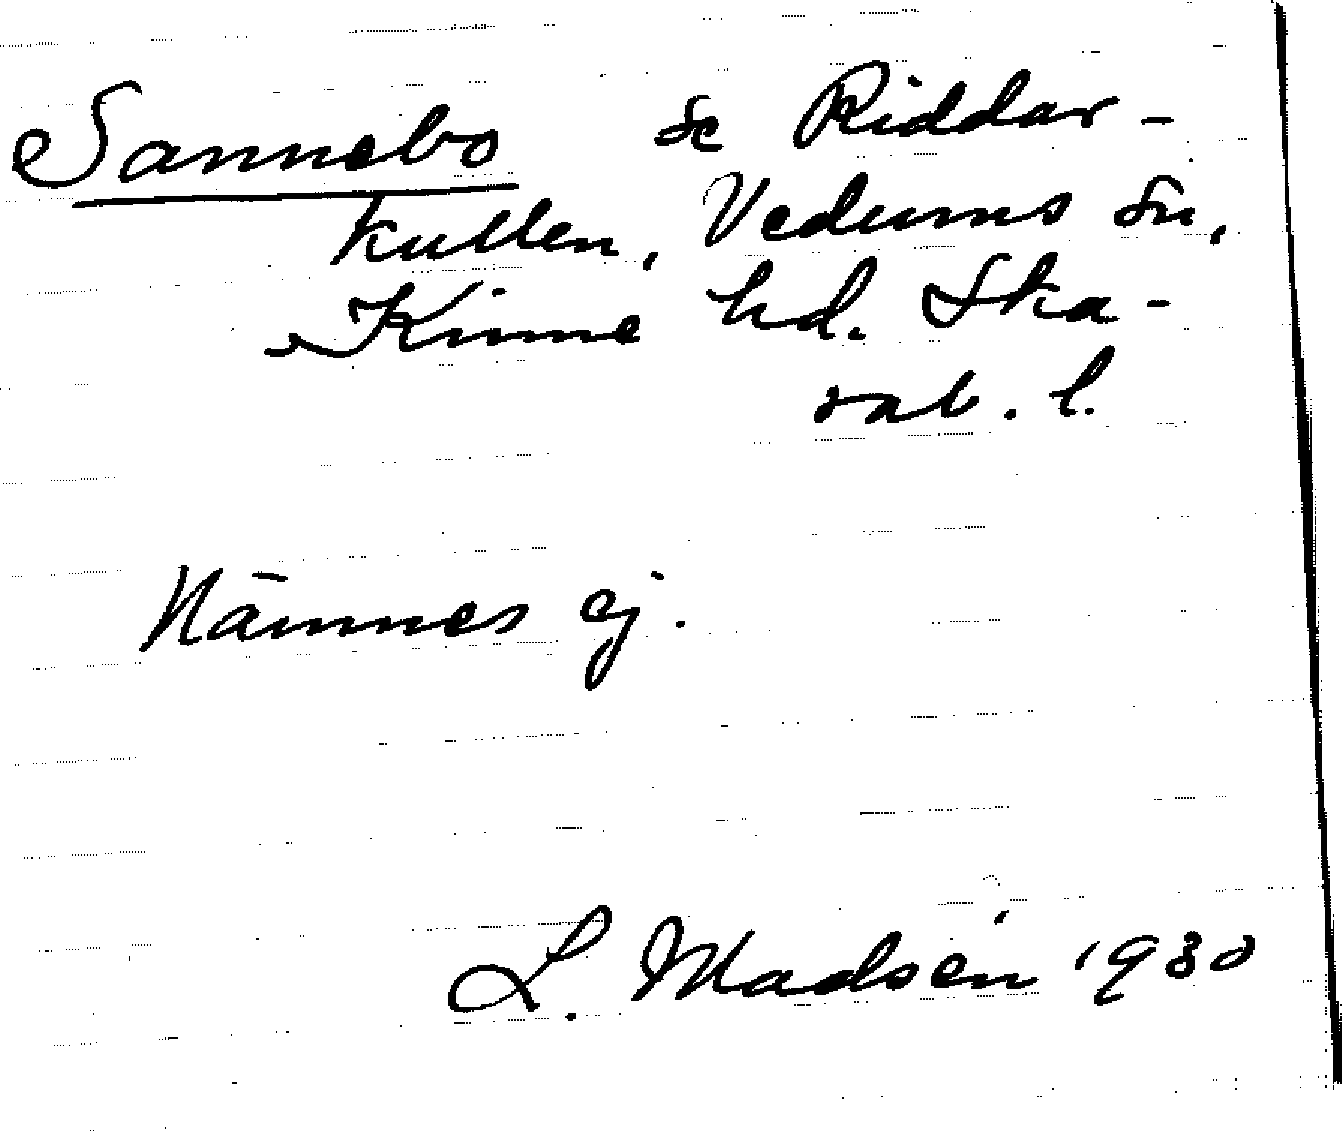 Sannebo se Riddar-
kullen, Vedums sn,
Kinne hd. Ska-
rab. l.
Nämnes ej.
L. Madsén 1930